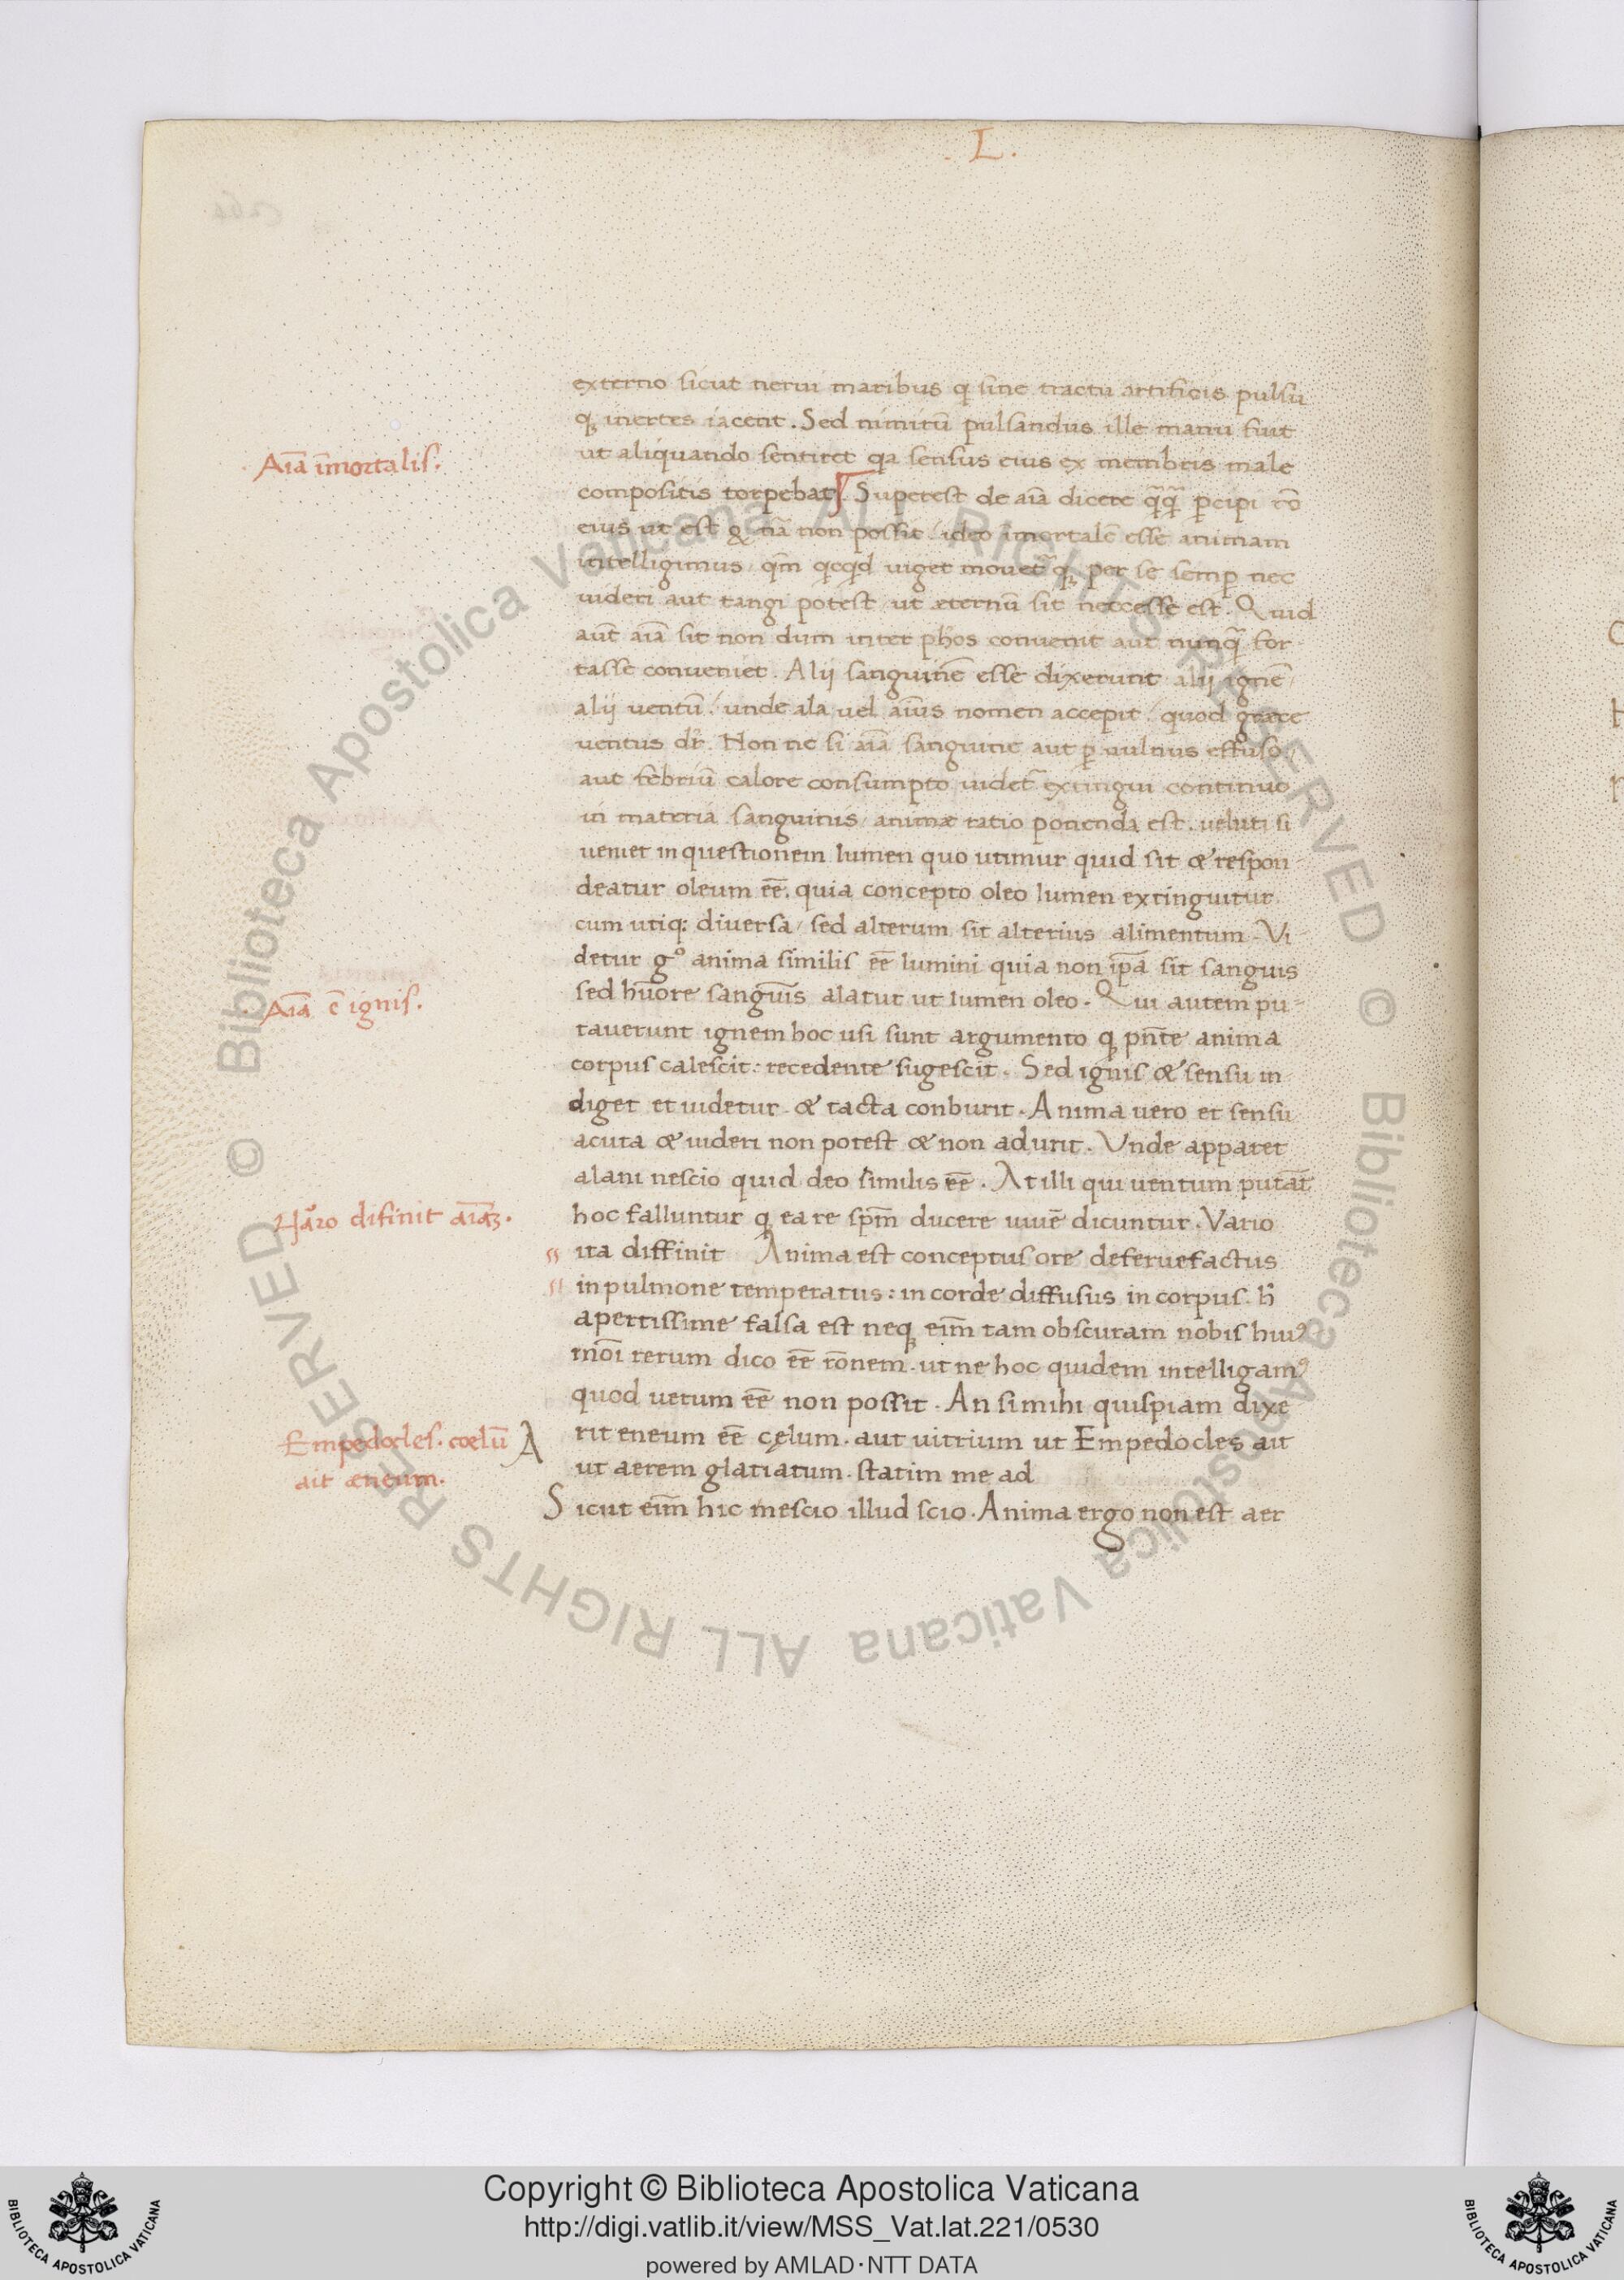 . L .
externo sicut nerui maribus q̨ sine tractu artificis pulsu
q̨ inertes iacent . Sed nimirū pulsandus ille manu fuit
ut aliquando sentiret qa sensus eius ex membris male
Aīa īmortalis .
compositis torpebat . Superest de aīa dicere q̄q̄ p̱cipi rō
eius ut est & nā non possit / ideo imortalē esse animam
intelligimus / qm̄ qcqd uiget mouet q̨ per se semp̱ nec
uideri aut tangi potest / ut æternū sit neccesse est . Quid
aut̄ aīa sit non dum inter phōs convenit aut nunq̄ for
tasse conveniet . Alij sanguinē esse dixerunt alij ignē /
alij uentū / unde ala uel aīus nomen accepit / quod græce
uentus dr̄ . Non ne si aīa sanguine aut p̱ uulnus effuso /
aut febriū calore consumpto uidet̄ extingui continuo
in materia sanguinis / animæ ratio ponenda est . ueluti si
ueniet in questionem lumen quo utimur quid sit & respon
deatur oleum eē . quia concepto oleo lumen extinguitur
cum utiq: diuersa / sed alterum sit alterius alimentum . Vi
detur gº anima similis eē lumini quia non ip̄a sit sanguis
sed hūore sanguīs alatur ut lumen oleo . Qui autem pu-
Aīa ē ignis .
tauerunt ignem hoc usi sunt argumento q̨ pn̄te anima
corpus calescit : recedente sugescit . Sed ignis & sensu in
diget et uidetur & tacta conburit . Anima uero et sensu
acuta & uideri non potest & non adurit . Vnde apparet
alani nescio quid deo similis eē . At illi qui uentum putāt
hoc falluntur q̨ ea re sp̄m ducere uiuē dicuntur . Vario
difinit aīaʒ .
ita diffinit Anima est conceptus ore deferuefactus
in pulmone temperatus : in corde diffusus in corpus . h̄
apertissime falsa est neq̨ eīm tam obscuram nobis huiꝰ
mōi rerum dico eē rōnem . ut ne hoc quidem intelligamꝰ
quod uerum eē non possit . An si mihi quispiam dixe
Empedocles . coelū
ait æneum .
A
rit eneum eē cęlum . aut uitrium ut Empedocles ait
ut aerem glatiatum . statim me ad
Sicut eīm hic mescio illud scio . Anima ergo non est aer
Copyright © Biblioteca Apostolica Vaticana
http://digi.vatlib.it/view/MSS_Vat.lat.221/0530
powered by AMLAD·NTT DATA
BIBLIOTECA APOSTOLICA VATICANA
BIBLIOTECA APOSTOLICA VATICANA
© Biblioteca Apostolica Vaticana ALL RIGHTS RESERVED © Biblioteca Apostolica Vaticana ALL RIGHTS RESERVED